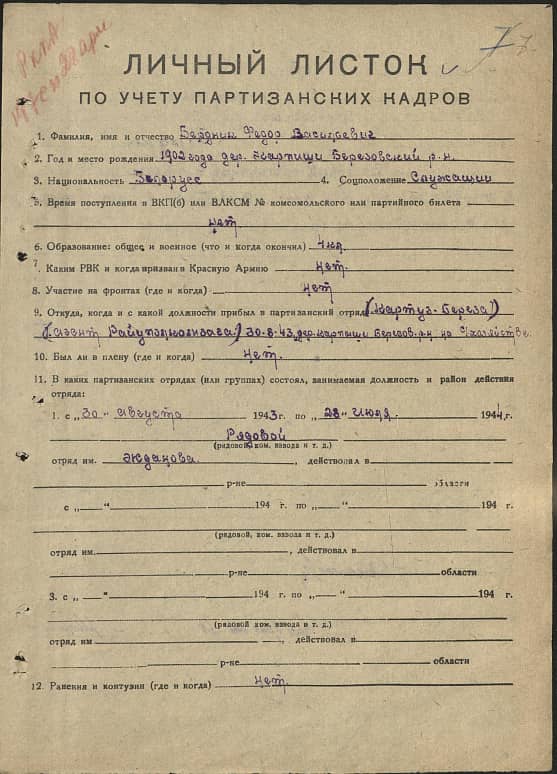 ЛИЧНЫЙ ЛИСТОК
ПО УЧЕТУ ПАРТИЗАНСКИХ КАДРОВ
1. Фамилия, имя и отчество Бердник Федор Васильевич
2. Год и место рождения 1902 года дер. Карпиши Березовский р-н.
3. Национальность Белорусс 4. Соцположение Служащий
5. Время поступления в ВКП(б) или ВЛКСМ № комсомольского или партийного билета
нет
6. Образование: общее и военное (что и когда окончил) 4 кл.
7. Каким РВК и когда призван в Красную Армию нет.
8. Участие на фронтах (где и когда) нет
9. Откуда, когда и с какой должности прибыл в партизанский отряд (Картуз-Береза)
(агент Райуполномзага) 30-8-43, дер. Карпиши Березов. р-н на с/хозяйстве
10. Был ли в плену (где и когда) нет.
11. В каких партизанских отрядах (или группах) состоял, занимаемая должность и район действия
отряда:
1. с „30" Августа 1943 г. по „28" Июля. 1944 г.
Рядовой
(рядовой, ком. взвода и т. д.)
отряд им. Жданова. , действовал в
р-не области
с „ — " 194 г. по „ — " 194 г.
(рядовой, ком. взвода и т. д.)
отряд им. , действовал в
р-не области
3. с „ — " 194 г. по „ — " 194 г.
(рядовой ком. взвода и т. д.)
отряд им , действовал в
р-не области
12. Ранения и контузии (где и когда) нет.